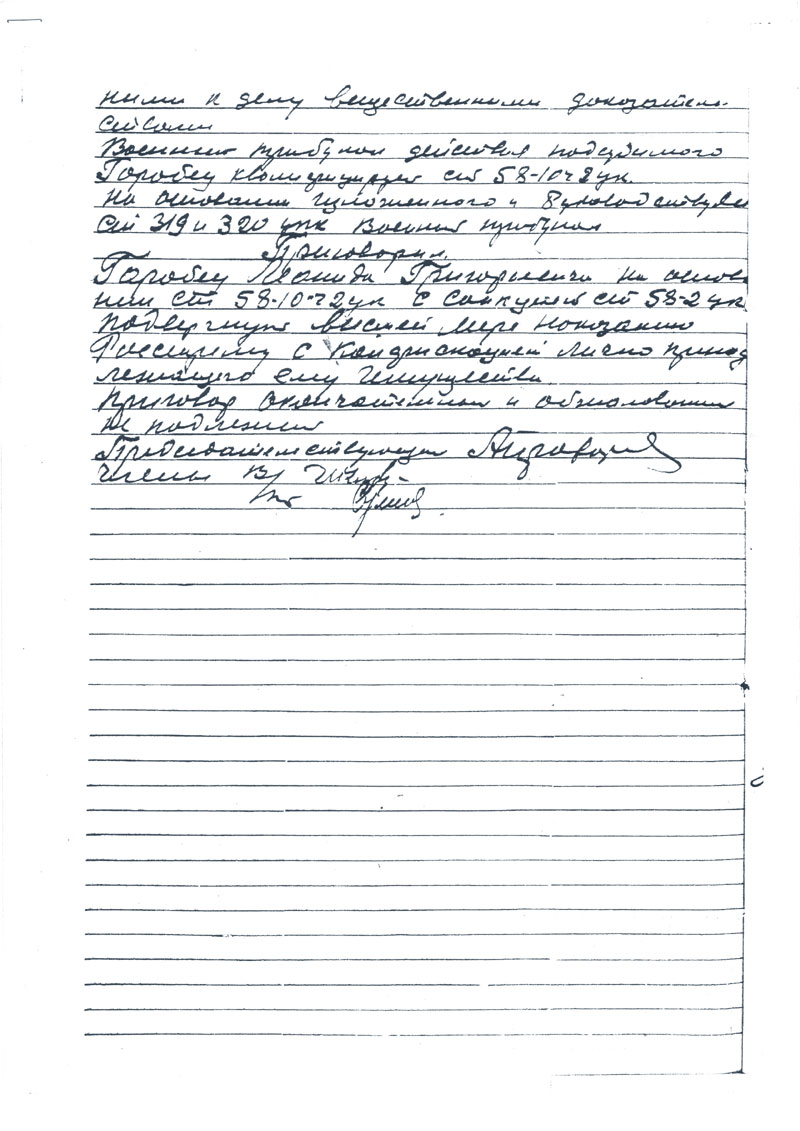 ными к делу вещественными доказатель-
ствами
Военный трибунал действия подсудимого
Горобец квалифицирует ст 58-10 ч 2 ук.
На основании изложенного и Руководствуясь
ст 319 и 320 упк Военный трибунал
Приговорил.
Горобец Леонида Григорьевича на основа
нии ст 58-10-ч 2 ук с санкцией ст 58-2 ук
подвергнуть высшей мере наказанию
Расстрелу с Конфискацией лично принад
лежащего ему Имущества
Приговор окончательный и обжалованию
не подлежит
Председательствующий
члены